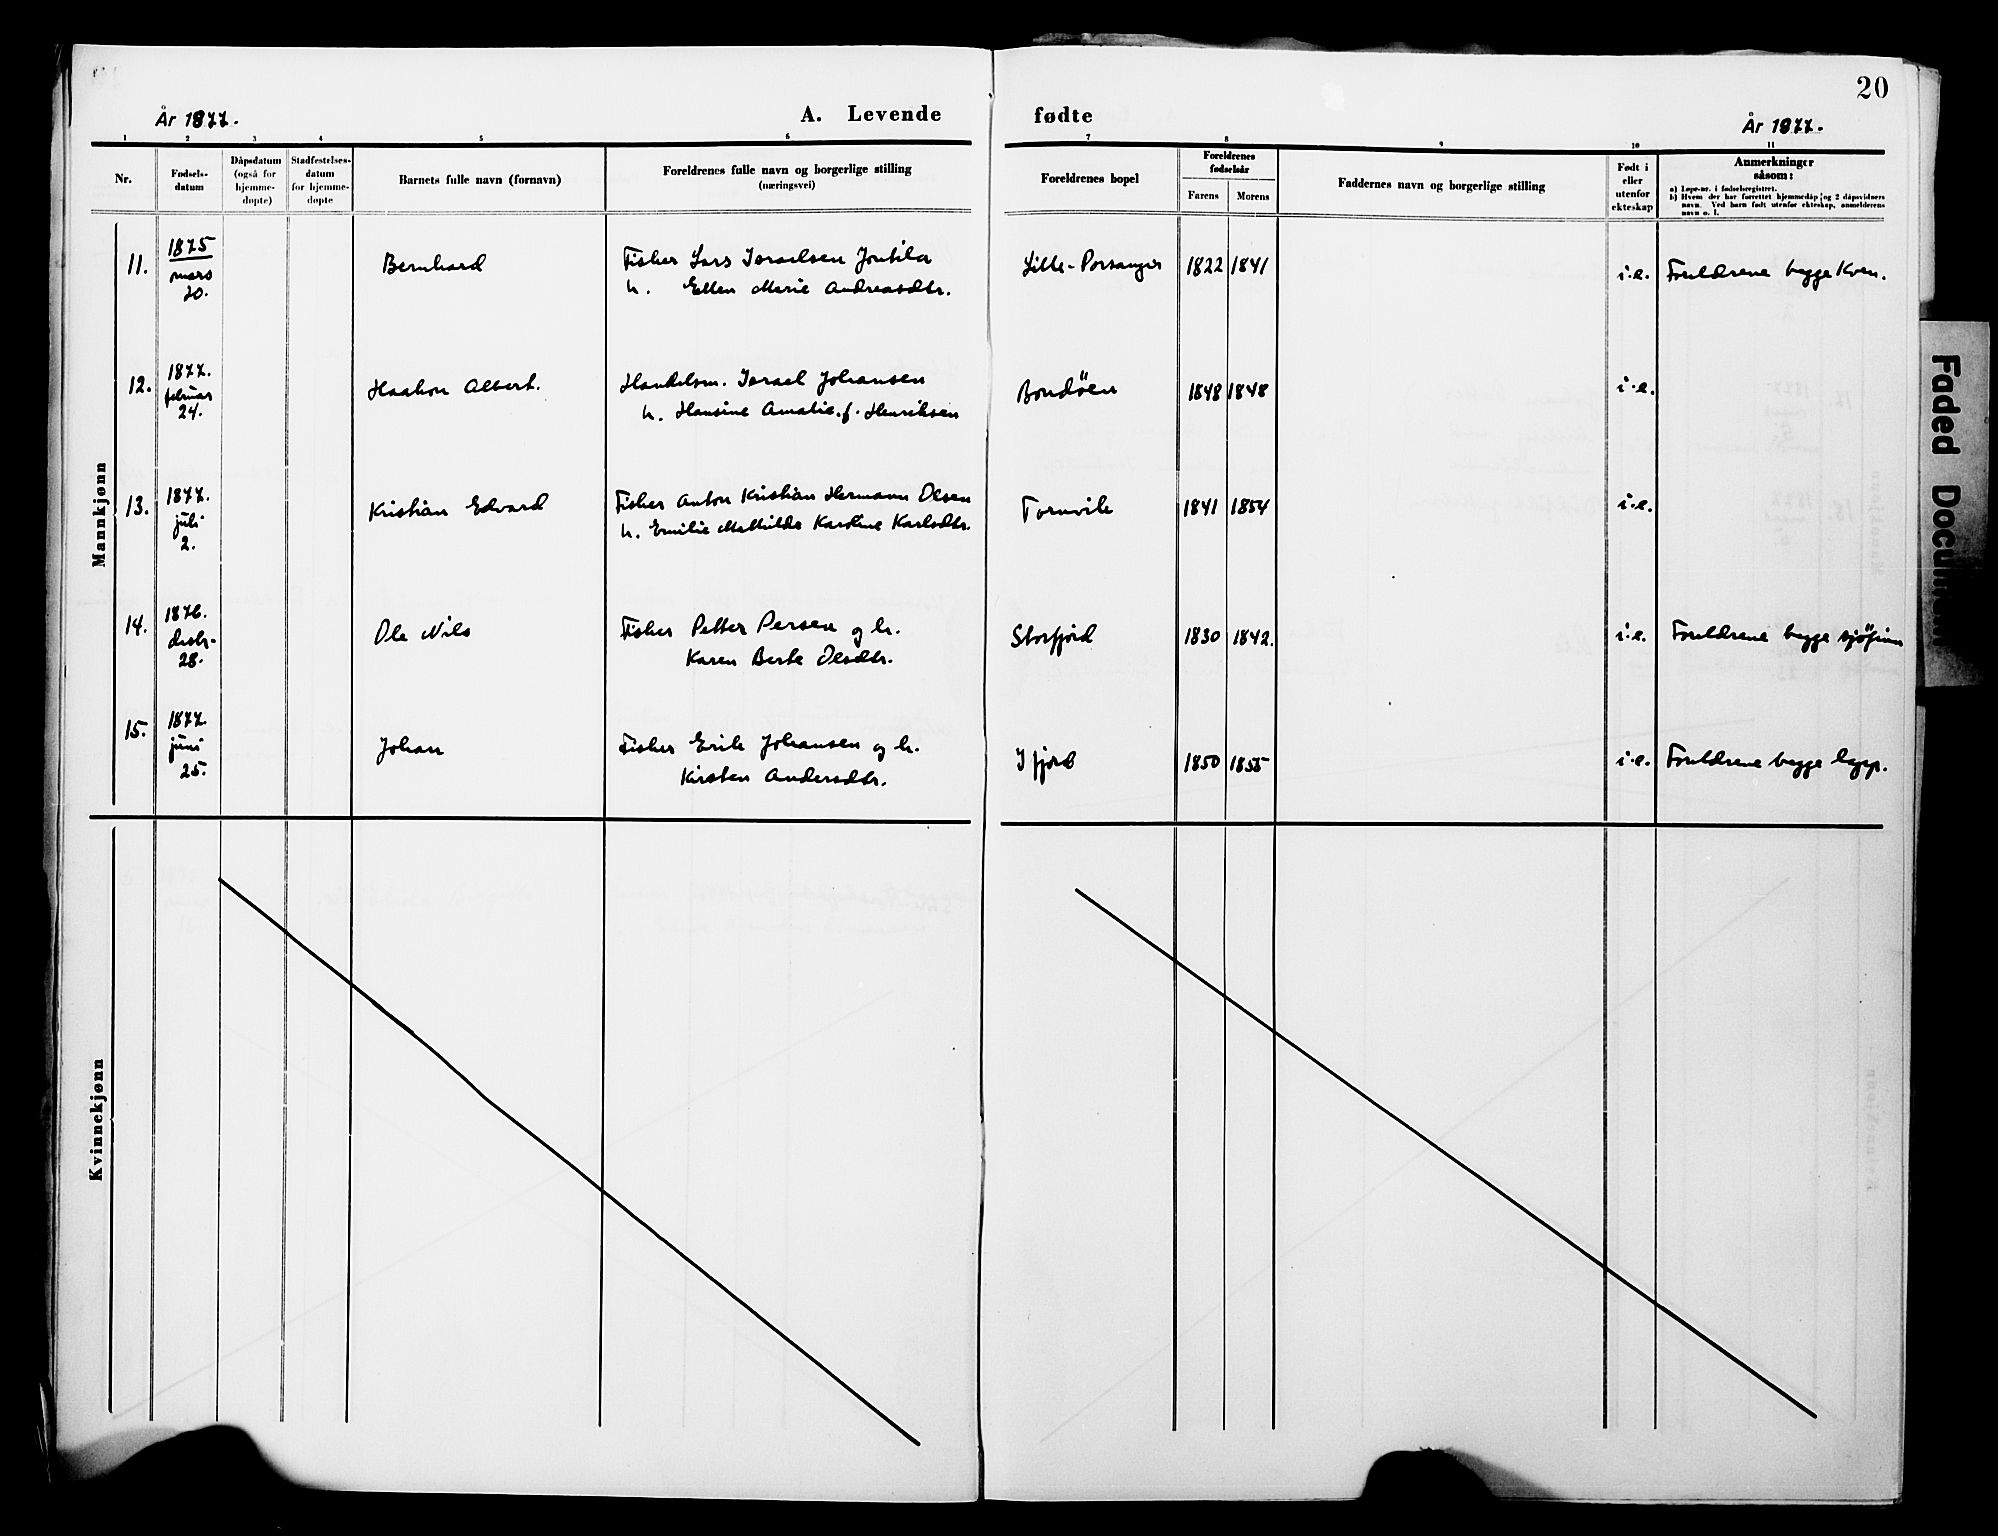 20
År 1877.
A. Levende fødte
År 1877.
1 2 3 4 5 6 7 8 9 10 11
Nr.
Fødsels-
datum
Dåpsdatum
(også for
hjemme-
døpte)
Stadfestelses-
datum
for hjemme-
døpte
Barnets fulle navn (fornavn)
Foreldrenes fulle navn og borgerlige stilling
(næringsvei)
Foreldrenes bopel
Foreldrenes
fødselsår
Farens Morens
Faddernes navn og borgerlige stilling
Født i
eller
utenfor
ekteskap
Anmerkninger
såsom:
a) Løpe-nr. i fødselsregistret.
b) Hvem der har forrettet hjemmedåp og 2 dåpsvidners
navn. Ved barn født utenfor ekteskap, anmelderens
navn o. l.
Mannkjønn
11. 1875 Bernhard Fisker Lars Israelsen Lille-Porsanger 1822 1841 i.e. Foreldrene begge Kven.
mars
20. h. Ellen Marie Andreasdtr.
12. 1877. Haakon Albert. Handelsm. Israel Johansen 1848 1848 i.e.
februar
24. h. Hansine Amalie f. Henriksen
13. 1877. Kristian Edvard Fisker Anton Kristian Hermann Olsen Tornvik 1841 1854 i.e.
juli
2. h. Emilie Mathilde Karoline Karlsdtr.
14. 1876. Ole Nils Fisker Petter Persen og h. Storfjord 1830 1842. i.e. Foreldrene begge sjøfinn
desbr.
28. Karen Berte Olsdtr.
15. 1877. Johan Fisker Erik Johansen og h. Ifjord 1850 1855 i.e. Foreldrene begge lapp.
juni
25. Kirsten Andersdtr.
Kvinnekjønn
Faded Document